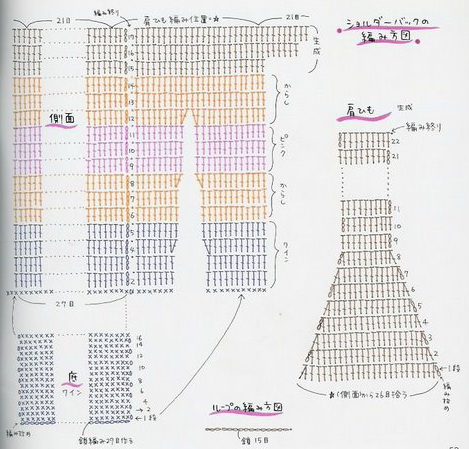 ショルダーバックの
編み方図
21目
編み終り
肩ひも編み位置・☆
21目
17
16
15
生成
14
13
12
からし
側面
11
10
9
ピンク
8
7
6
からし
5
4
3
2
ワイン
27目
肩ひも
生成
編み終り
22
21
11
10
9
8
7
6
5
4
3
2
←1段
編み始め
★(側面から26目拾う)
16
14
12
10
8
6
4
→2
←1段
底
ワイン
編み始め
鎖編み27目作る
ループの編み方図
鎖15目